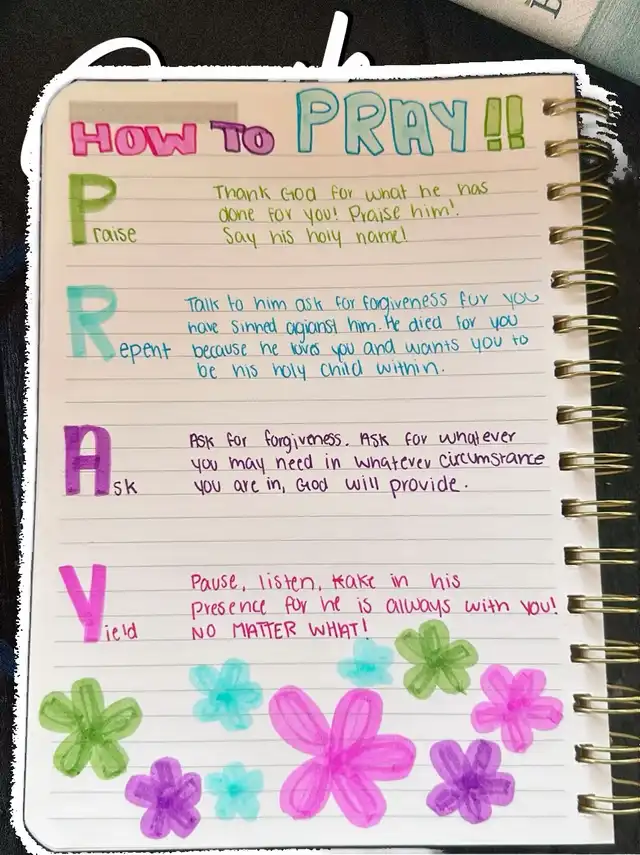 HOW TO PRAY!!
Praise
Thank God for what he has
done for you! Praise him!
Say his holy name!
Repent
Talk to him ask for forgiveness fur you
have sinned against him. He died for you
because he loves you and wants you to
be his holy child within.
Ask
Ask for forgiveness. Ask for whatever
you may need in whatever circumstance
you are in, God will provide.
Yield
Pause, listen, take in his
presence for he is always with you!
NO MATTER WHAT!